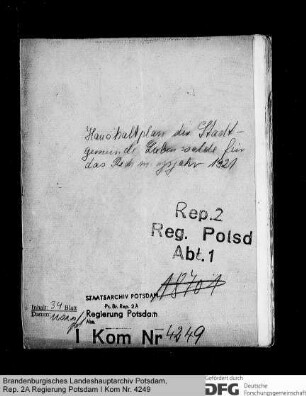 Haushaltplan der Stadt-
gemeinde für
das Rechnungsjahr 1921
Rep.2
Reg. Potsd
Abt.1
STAATSARCHIV POTSDAM
Pr. Br. Rep. 2 A
Regierung Potsdam
Abt.
I Kom Nr 4249
Inhalt: 34 Blatt
Datum:
Brandenburgisches Landeshauptarchiv Potsdam,
Rep. 2A Regierung Potsdam I Kom Nr. 4249
Gefördert durch
DFG Deutsche
Forschungsgemeinschaft